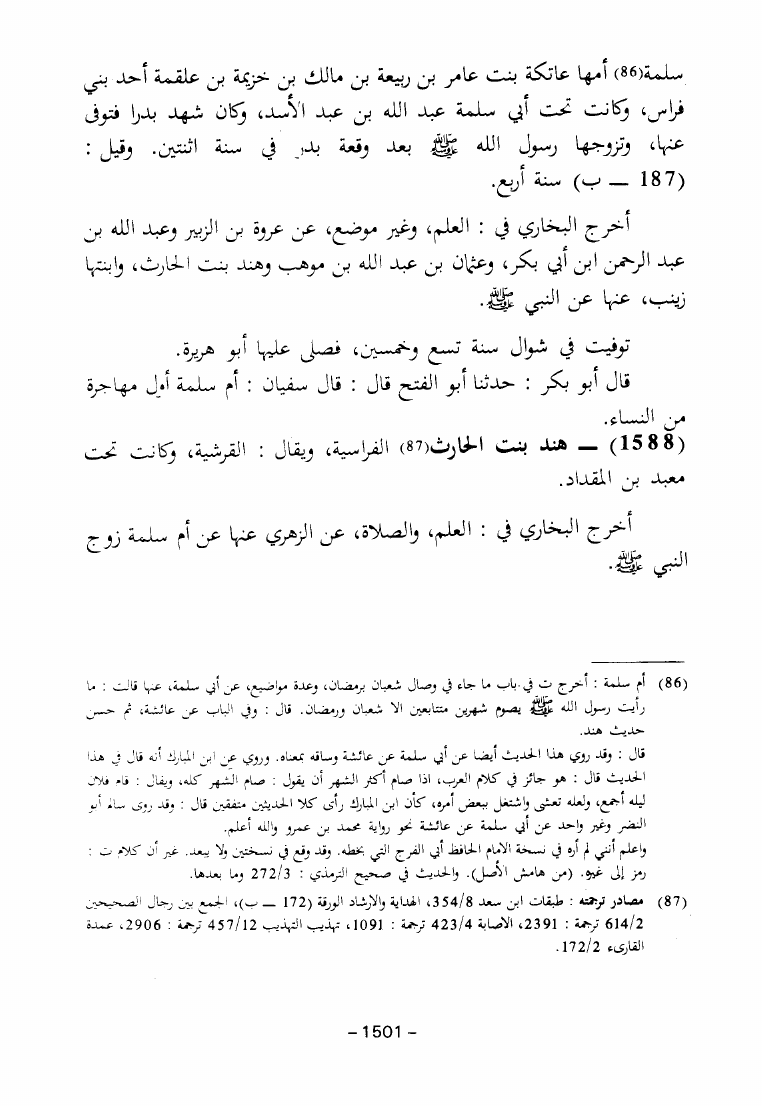 سلمة(86) أمها عاتكة بنت عامر بن ربيعة بن مالك بن خزيمة بن علقمة أحد بني
فراس، وكانت تحت أبي سلمة عبد الله بن عبد الأسد، وكان شهد بدرا فتوفى
عنها، وتزوجها رسول الله ﷺ بعد وقعة بدر في سنة اثنتين. وقيل :
(187 — ب) سنة أربع.
أخرج البخاري في : العلم، وغير موضع، عن عروة بن الزبير وعبد الله بن
عبد الرحمن ابن أبي بكر، وعثمان بن عبد الله بن موهب وهند بنت الحارث، وابنتها
زينب، عنها عن النبي ﷺ.
توفيت في شوال سنة تسع وخمسين، فصلى عليها أبو هريرة.
قال أبو بكر : حدثنا أبو الفتح قال : قال سفيان : أم سلمة أول مهاجرة
من النساء.
(1588) — هند بنت الحارث(87) الفراسية، ويقال : القرشية، وكانت تحت
معبد بن المقداد.
أخرج البخاري في : العلم، والصلاة، عن الزهري عنها عن أم سلمة زوج
النبي ﷺ.
(86) أم سلمة : أخرج ت في باب ما جاء في وصال شعبان برمضان، وعدة مواضيع، عن أبي سلمة، عنها قالت : ما
رأيت رسول الله ﷺ يصوم شهرين متتابعين الا شعبان ورمضان. قال : وفي الباب عن عائشة، ثم حسن
حديث هند.
قال : وقد روي هذا الحديث أيضا عن أبي سلمة عن عائشة وساقه بمعناه. وروي عن ابن المبارك أنه قال في هذا
الحديث قال : هو جائز في كلام العرب، اذا صام أكثر الشهر أن يقول : صام الشهر كله، ويقال : قام فلان
ليله أجمع، ولعله تعشى واشتغل ببعض أمره، كأن ابن المبارك رأى كلا الحديثين متفقين قال : وقد روى سالم أبو
النضر وغير واحد عن أبي سلمة عن عائشة نحو رواية محمد بن عمرو والله أعلم.
واعلم أنني لم أره في نسخة الامام الحافظ أبي الفرج التي بخطه. وقد وقع في نسختين ولا يبعد. غير أن كلام ت :
رمز إلى غيره. (من هامش الأصل). والحديث في صحيح الترمذي : 272/3 وما بعدها.
(87) مصادر ترجمته : طبقات ابن سعد 354/8، الهداية والارشاد الورقة (172 — ب)، الجمع بين رجال الصحيحين
614/2 ترجمة : 2391، والاصابة 423/4 ترجمة : 1091، تهذيب التهذيب 457/12 ترجمة : 2906، عمدة
القارىء 172/2.
– 1501 –